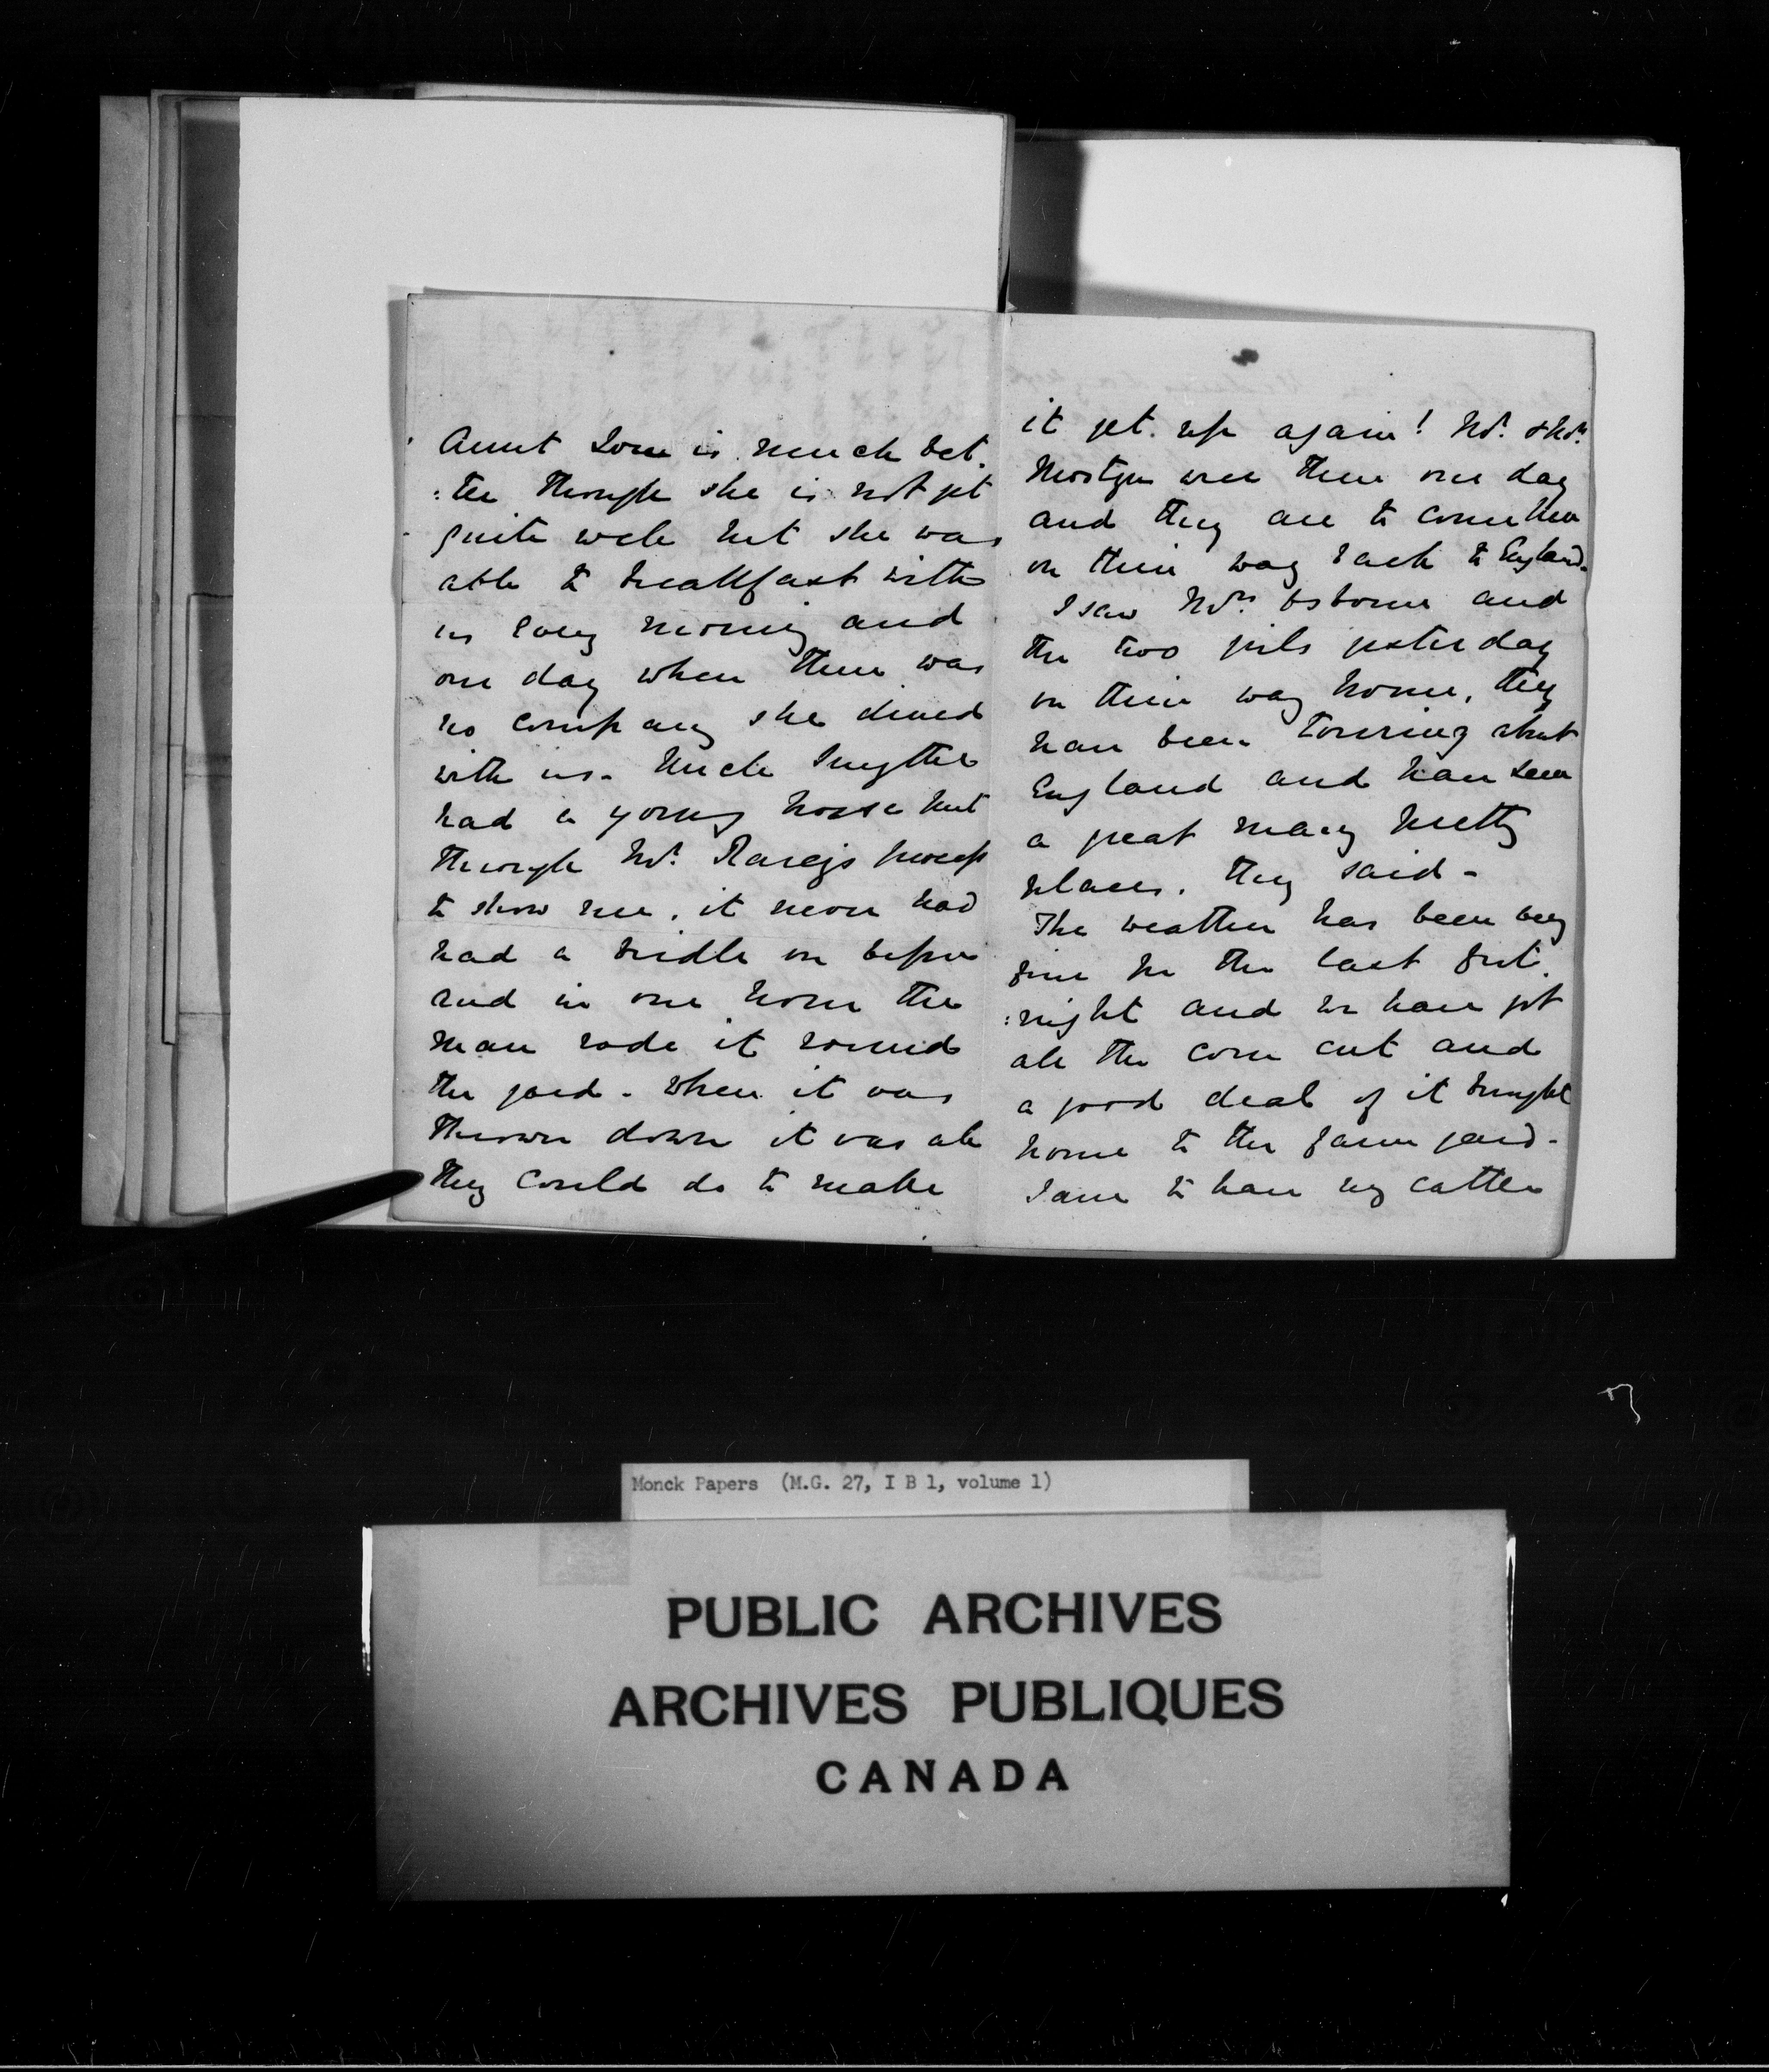 Aunt Lou is much bet
:ter though she is not yet
quite well but she was
able to breakfast with
us every morning and
one day when there was
no company she dined
with us. Uncle Smythe
had a young horse put
through Mr. Rarey's process
to show me, it never had
had a bridle on before
and in one hour the
man rode it round
the yard. When it was
thrown down it was all
they could do to make
it get up again! Mr. & Mrs.
were there one day
and they are to come here
on their way back to England.
I saw Mrs. Osborne and
the two girls yesterday
on their way home, they
have been touring about
England and have seen
a great many pretty
places, they said -
The weather has been very
fine for the last fort
:night and we have got
all the corn cut and
a good deal of it brought
home to the farm yard -
I am to have my cattle
Monck Papers (M.G. 27, I B 1, volume 1)
PUBLIC ARCHIVES
ARCHIVES PUBLIQUES
CANADA